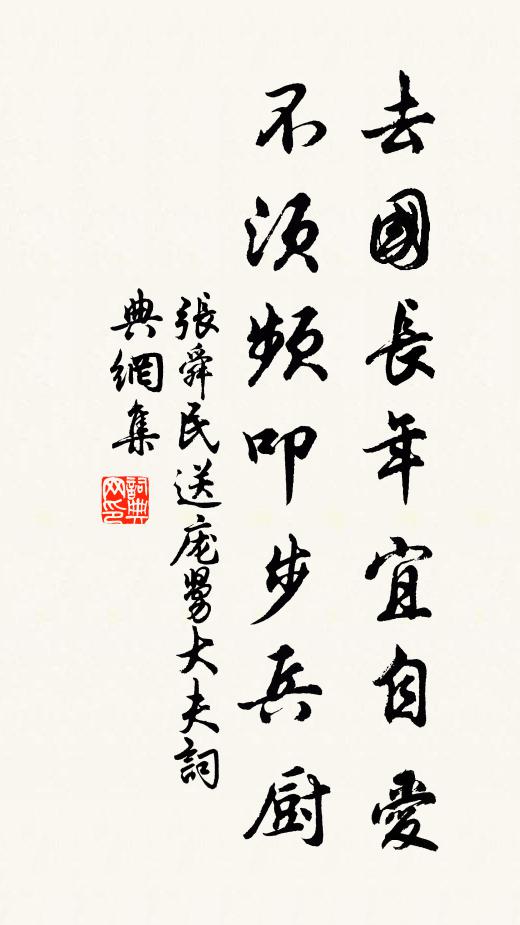 去國長年宜自愛
不須頻叩步兵厨
張舜民送庞甥大夫詞
典網集
詞典网印